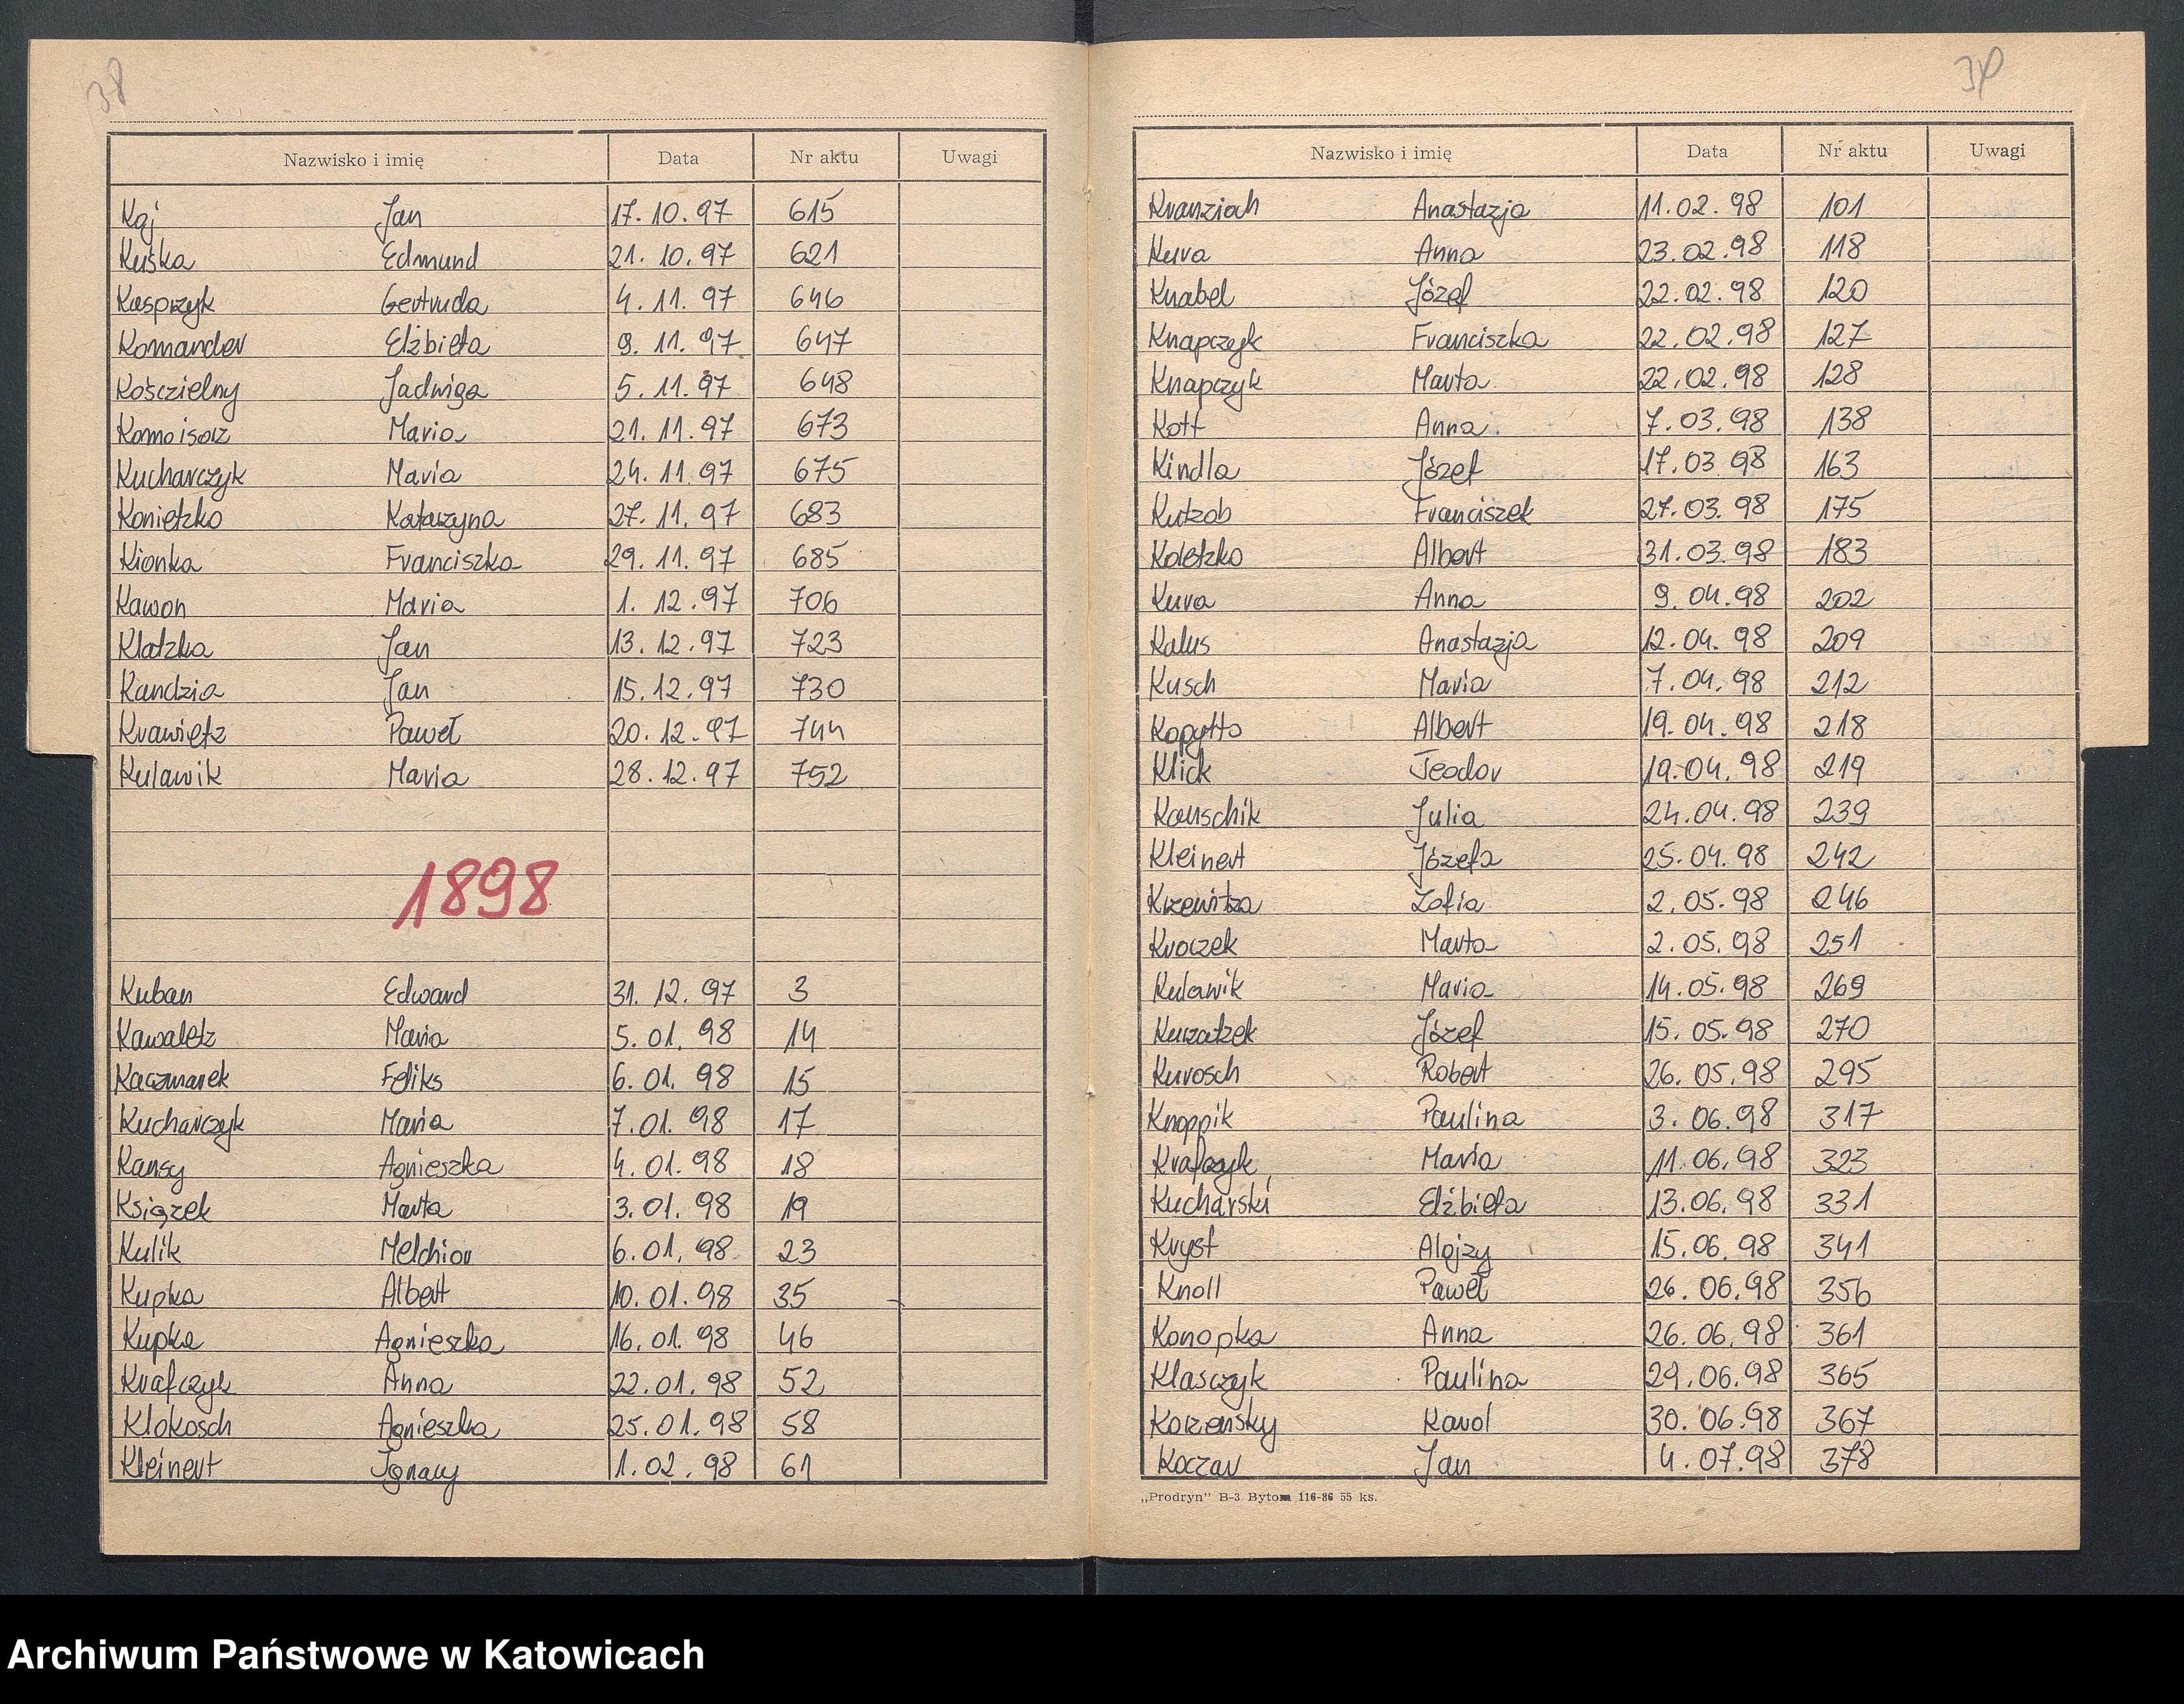 38
Nazwisko i imię Data Nr aktu Uwagi
Kaj Jan 17.10.97 615
Kuśka Edmund 21.10.97 621
Kasprzyk Gertruda 4.11.97 646
Komander Elżbieta 9.11.97 647
Kościelny Jadwiga 5.11.97 648
Maria 21.11.97 673
Kucharczyk Maria 24.11.97 675
Konietzko Katarzyna 27.11.97 683
Kionka Franciszka 29.11.97 685
Kawon Maria 1.12.97 706
Klatzka Jan 13.12.97 723
Kandzia Jan 15.12.97 730
Krawietz Paweł 20.12.97 744
Kulawik Maria 28.12.97 752
1898
Kuban Edward 31.12.97 3
Kawaletz Maria 5.01.98 14
Kaczmarek Feliks 6.01.98 15
Kucharczyk Maria 7.01.98 17
Kansy Agnieszka 4.01.98 18
Książek Marta 3.01.98 19
Kulik Melchior 6.01.98 23
Kupka Albert 10.01.98 35
Kupka Agnieszka 16.01.98 46
Krafczyk Anna 22.01.98 52
Klokosch Agnieszka 25.01.98 58
Kleinert Ignacy 1.02.98 61
Nazwisko i imię Data Nr aktu Uwagi
Kranzioch Anastazja 11.02.98 101
Kura Anna 23.02.98 118
Knabel Józef 22.02.98 120
Knapczyk Franciszka 22.02.98 127
Knapczyk Marta 22.02.98 128
Kott Anna 7.03.98 138
Kindla Józef 17.03.98 163
Kutzob Franciszek 27.03.98 175
Koletzko Albert 31.03.98 183
Kura Anna 9.04.98 202
Kalus Anastazja 12.04.98 209
Kusch Maria 7.04.98 212
Kopytto Albert 19.04.98 218
Klick Teodor 19.04.98 219
Kauschik Julia 24.04.98 239
Kleinert Józefa 25.04.98 242
Krzewitza Zofia 2.05.98 246
Kroczek Marta 2.05.98 251
Kulawik Maria 14.05.98 269
Kurzatzek Józef 15.05.98 270
Kurosch Robert 26.05.98 295
Knoppik Paulina 3.06.98 317
Krafczyk Maria 11.06.98 323
Kucharski Elżbieta 13.06.98 331
Kryst Alojzy 15.06.98 341
Knoll Paweł 26.06.98 356
Konopka Anna 26.06.98 361
Klasczyk Paulina 29.06.98 365
Korzensky Karol 30.06.98 367
Koczar Jan 4.07.98 378
„Prodryn” B-3 Bytom 116-86 55 ks.
Archiwum Państwowe w Katowicach